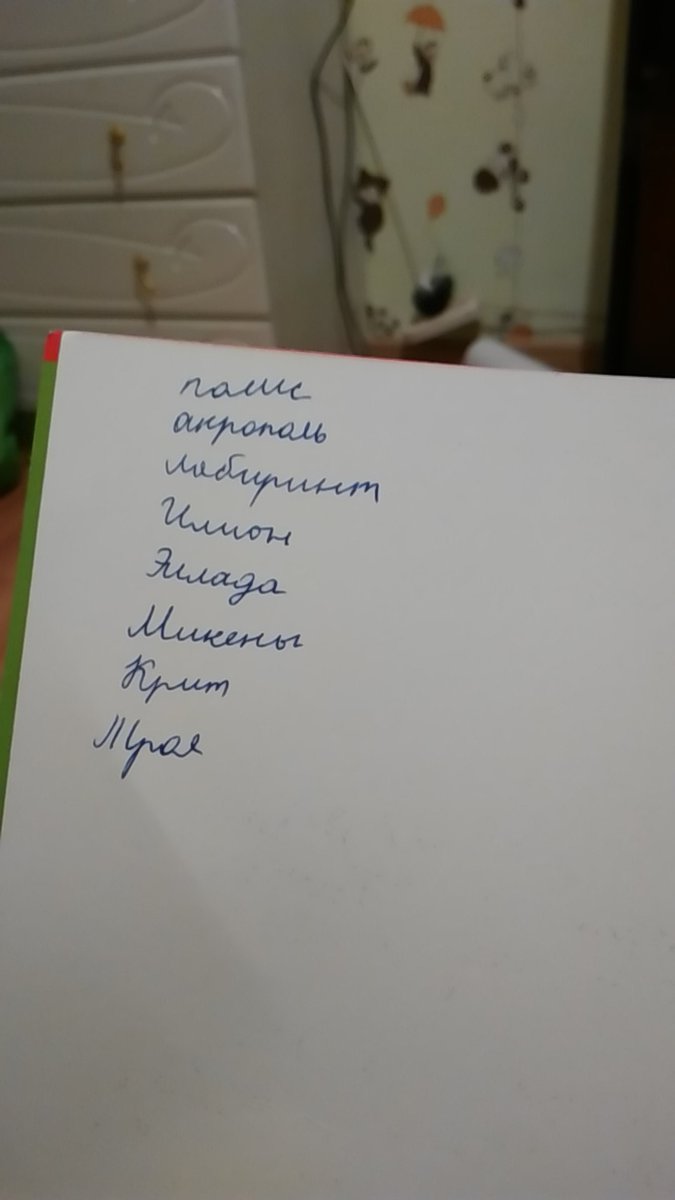 полис
акрополь
лабиринт
Илион
Эллада
Микены
Крит
Троя